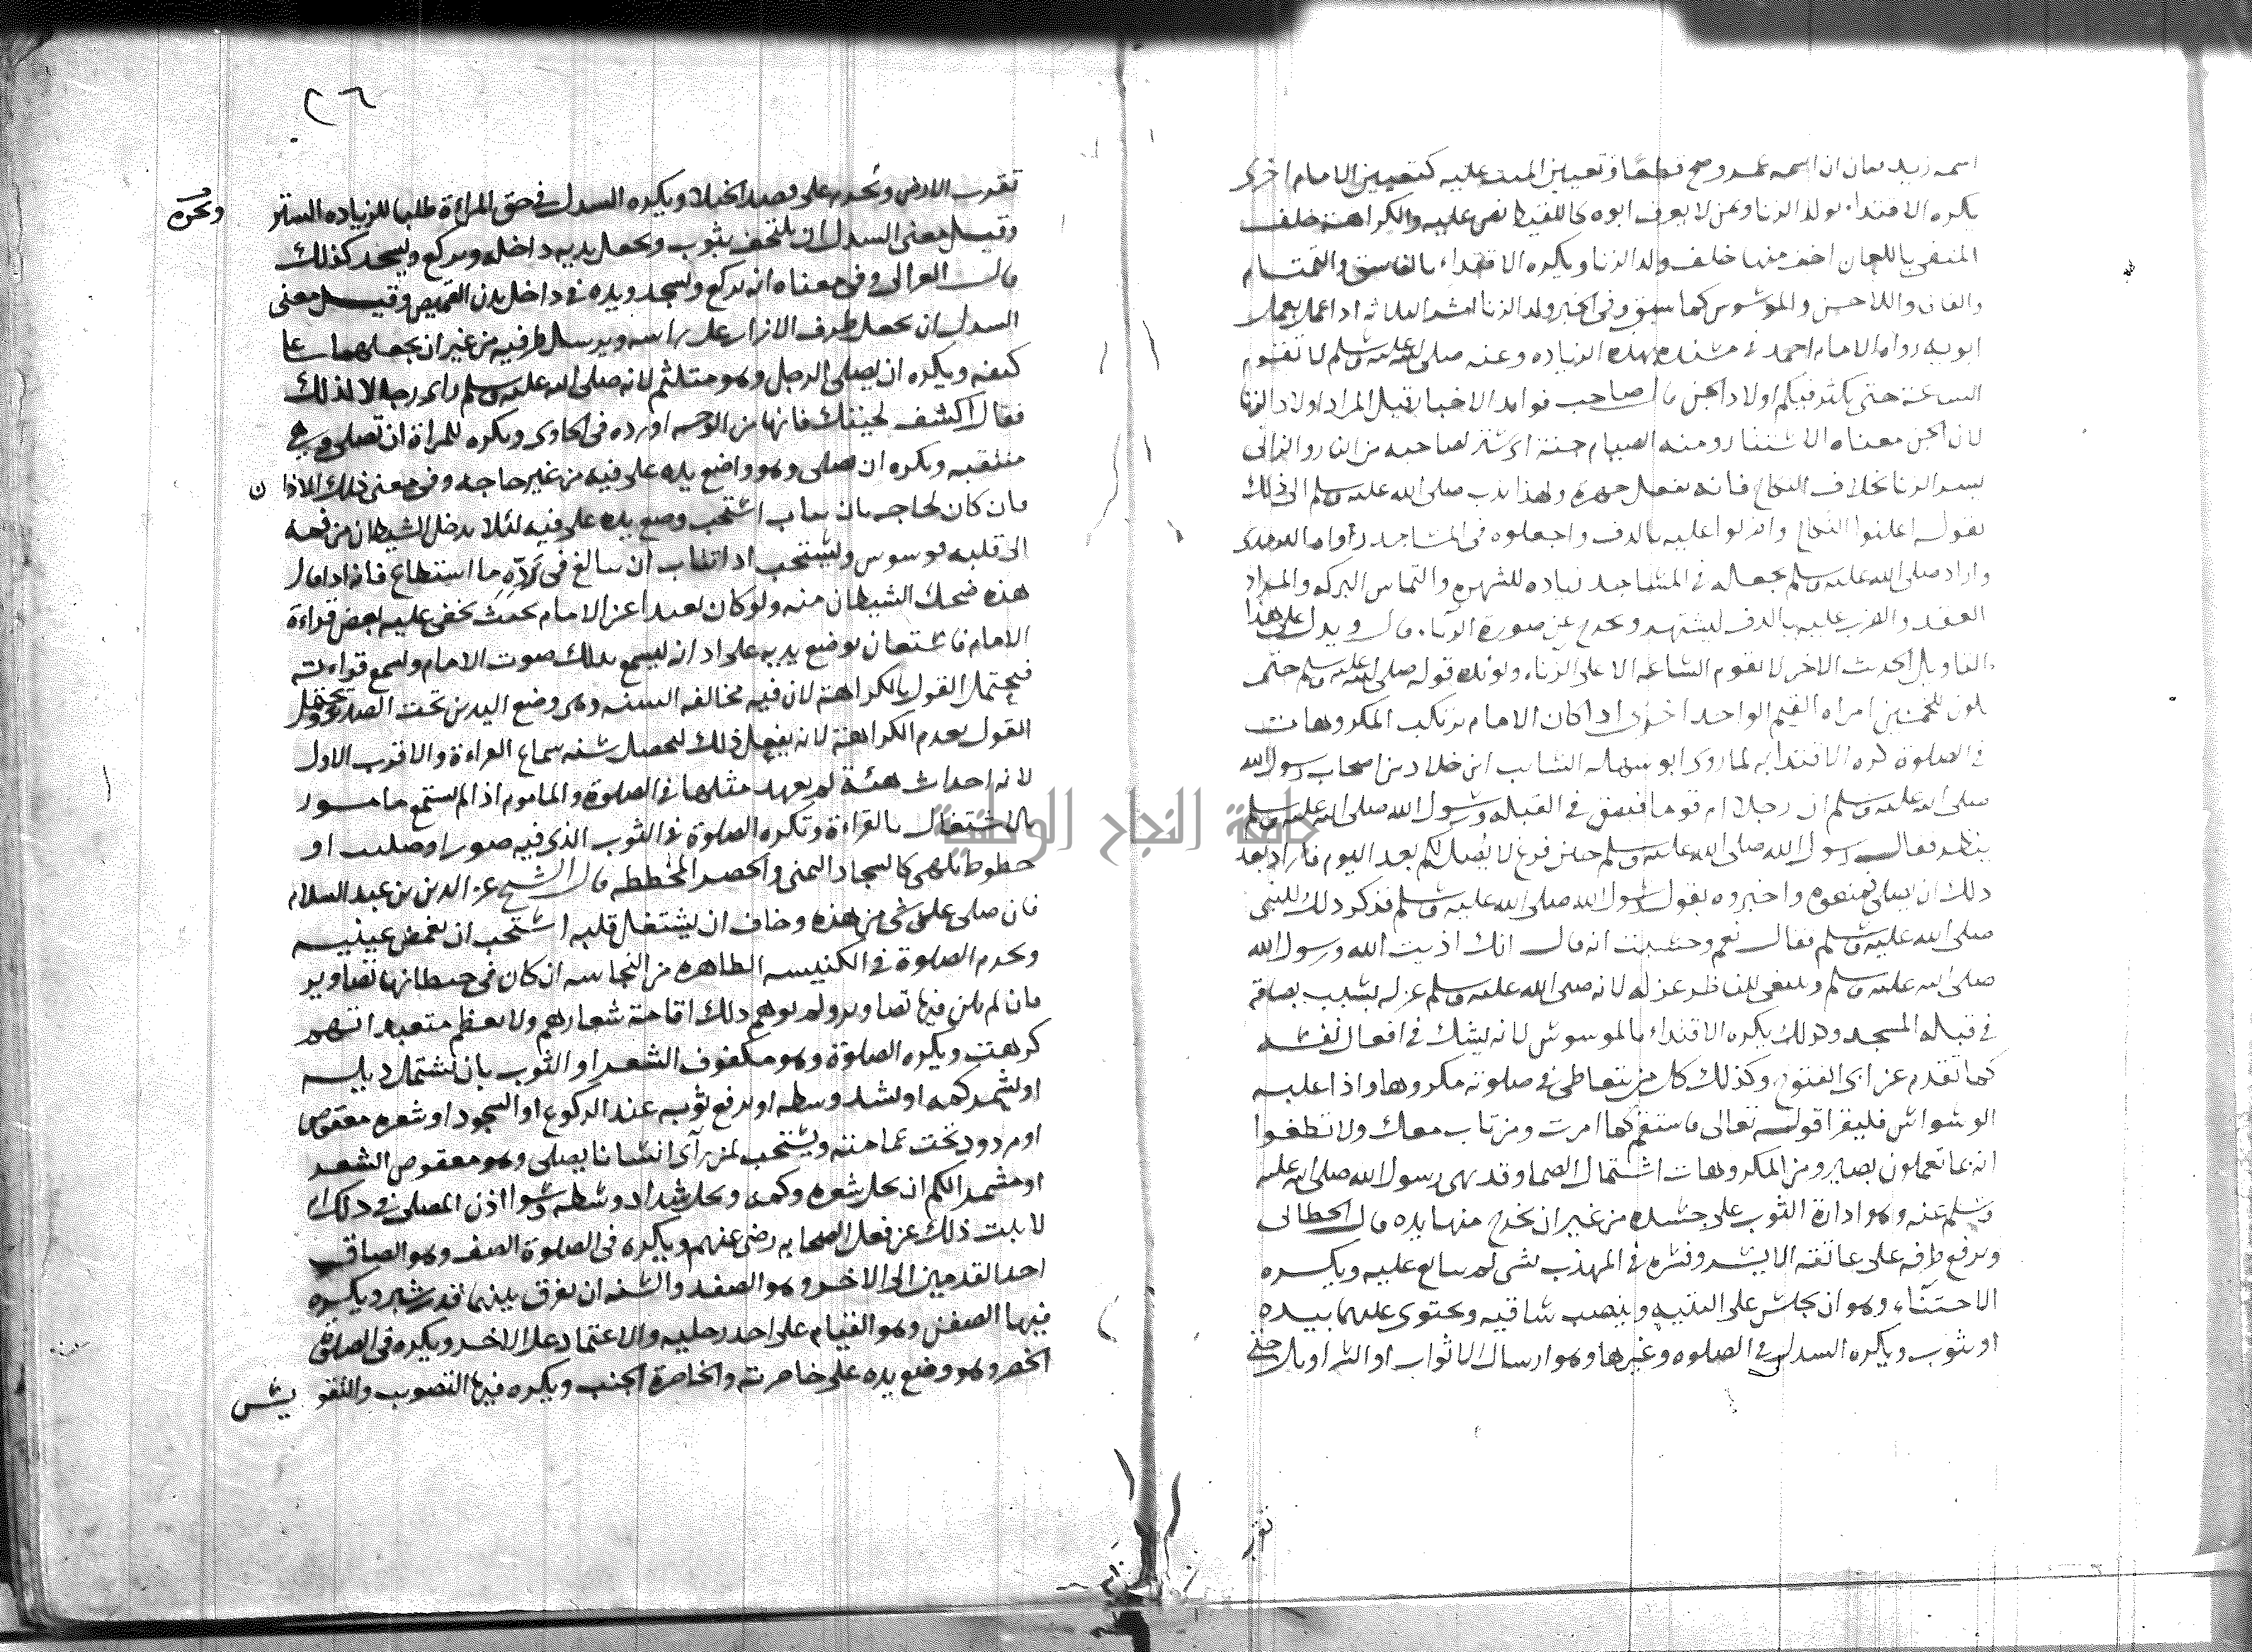 اسمه زيد فبان ان اسمه عمرو صح قطعا وتعيين الميت عليه كتعيين الامام اخرى
يكره الاقتداء بولد الزنا وبمن لا يعرف ابوه كاللقيط نص عليه والكراهة خلف
المنفي باللعان اخف منها خلف ولد الزنا ويكره الاقتداء بالفاسق والتمتام
والفافا واللاحن والموسوس كما سبق وفي الخبر ولد الزنا اشر الثلاثة اذا عمل بعمل
ابويه رواه الامام احمد في مسنده بهذه الزيادة وعنه صلى الله عليه وسلم لا تقوم
الساعة حتى يكثر فيكم اولاد الجن قال صاحب فوايد الاخبار قيل المراد اولاد الزنا
لان الجن معناه الاستتار ومنه الصيام جنة اي ستر لصاحبه من النار والزاني
يستر الزنا بخلاف النكاح فانه يفعل جهرة ولهذا ندب صلى الله عليه وسلم الى ذلك
بقوله اعلنوا النكاح واضربوا عليه بالدف واجعلوه في المساجد رواه الترمذي
واراد صلى الله عليه وسلم بجعله في المساجد زياده للشهره والتماس البركه والمراد
العقد والضرب عليه بالدف ليشتهر ويخرج عن صورة الزنا قال ويدل على هذا
التاويل الحديث الاخر لا تقوم الساعه الا على الزناء ويؤيده قوله صلى الله عليه وسلم حتى
يكون للخمسين امراه القيم الواحد اخرى اذا كان الامام يرتكب المكروهات
في الصلوة كره الاقتدا به لما روى ابو سهله السايب ابن خلاد من اصحاب رسول الله
صلى الله عليه وسلم ان رجلا ام قوما فبصق في القبله ورسول الله صلى الله عليه وسلم
ينظر فقال رسول الله صلى الله عليه وسلم حين فرغ لا يصلي لكم بعد اليوم فاراد بعد
ذلك ان يصلي فمنعوه واخبروه بقول رسول الله صلى الله عليه وسلم فذكر ذلك للنبي
صلى الله عليه وسلم فقال نعم وحسبت انه قال انك اذيت الله ورسول الله
صلى الله عليه وسلم وينبغي للناظر عزله لانه صلى الله عليه وسلم عزله بسبب بصاقه
في قبله المسجد وكذلك يكره الاقتداء بالموسوس لانه يشك في افعال نفسه
كما تقدم عن ابي الفتوح وكذلك كل من يتعاطى في صلوته مكروها واذا غلبه
الوسواس فليقرا قوله تعالى فاستقم كما امرت ومن تاب معك ولا تطغوا
انه بما تعملون بصير ومن المكروهات اشتمال الصما وقد نهى رسول الله صلى الله عليه
وسلم عنه وهو ادارة الثوب على جسده من غير ان يخرج منها يده قال الخطابي
ويرفع طرفه على عاتقه الايسر وفسره في المهذب بشي لم يتابع عليه ويكره
الاحتباء وهو ان يجلس على اليتيه وينصب ساقيه ويحتوي عليهما بيده
او بثوب ويكره السدل في الصلوه وغيرها وهو ارسال الاثواب او السراويلات حتى
٢٦
تقرب الارض ويحرم على قصد الخيلا ويكره السدل في حق المراة طلبا للزياده الستر
ونحوه
وقيل معنى السدل ان يلتحف بثوب ويجعل يديه داخله ويركع ويسجد كذلك
قال الغزالي وفي معناه ان يركع ويسجد ويده في داخل بدن القميص وقيل معنى
السدل ان يجعل طرف الازار على راسه ويرسل طرفيه من غير ان يجعلهما على
كتفه ويكره ان يصلي الرجل وهو متلثم لانه صلى الله عليه وسلم راى رجلا كذلك
فقال اكشف لحيتك فانها من الوجه اورده في الحاوي ويكره للمراة ان تصلي وهي
منتقبه ويكره ان يصلي وهو واضع يده على فيه من غير حاجه وفي معنى ذلك الاذان
فان كان لحاجه بان تثاب استحب وضع يده على فيه لئلا يدخل الشيطان من فمه
الى قلبه فوسوس ويستحب اذا تثاب ان يبالغ في رده ما استطاع فانه اذا قال
هذه ضحك الشيطان منه ولو كان بعيدا عن الامام بحيث تخفى عليه بعض قراءة
الامام فاستعان بوضع يديه على اذانه ليسمع بذلك صوت الامام ويسمع قراءته
فيحتمل القول بالكراهة لان فيه مخالفه السنه وهي وضع اليدين تحت الصدر ويحتمل
القول بعدم الكراهة لانه يفعل ذلك لتحصل سنه سماع القراءة والاقرب الاول
لانه احداث هيئة لم يعهد مثلها في الصلوة والماموم اذا لم يستمع مامور
بالاشتغال بالقراءة وتكره الصلوة في الثوب الذي فيه صور او صليب او
خطوط تلهي كالسجاد اليمني والحصر المخططه قال الشيخ عز الدين بن عبد السلام
فان صلى على شي من هذه وخاف ان يشتغل قلبه استحب ان يغمض عينيه
ويحرم الصلوة في الكنيسه الطاهره من النجاسه ان كان في حيطانها تصاوير
فان لم يكن فيها تصاوير ولم يوهم ذلك اقامة شعارهم ولا يعظم متعبداتهم
كرهت ويكره الصلوة وهو مكفوف الشعر او الثوب بان يشتمل ذيليه
او يشمر كمه او يشد وسطه او يرفع ثوبه عند الركوع او السجود او شعره معقوص
او مردود تحت عمامته ويستحب لمن راى انسانا يصلي وهو معقوص الشعر
او مشمر الكم ان يحل شعره وكمه ويحل شداد وسطه وسوا اذن المصلي في ذلك ام
لا ثبت ذلك عن فعل الصحابه رضي عنهم ويكره في الصلوة الصف وهو الصاق
احد القدمين الى الاخر وهو الصفد والسنه ان يفرق بينهما قدر شبر ويكره
فيها الصفن وهو القيام على احد رجليه والاعتماد على الاخر ويكره في الصلوة
الخصر وهو وضع يده على خاصرته والخاصرة الجنب ويكره فيها التصويب والتقويس
جامعة النجاح الوطنية